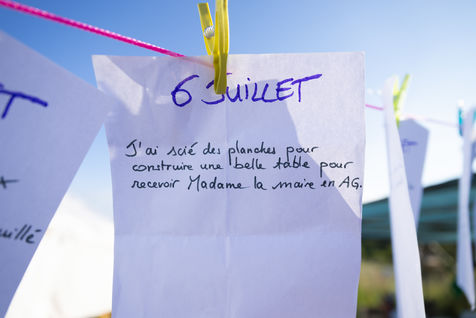 6 JUILLET
J'ai scié des planches pour
construire une belle table pour
recevoir Madame la maire en AG.
T
uillé